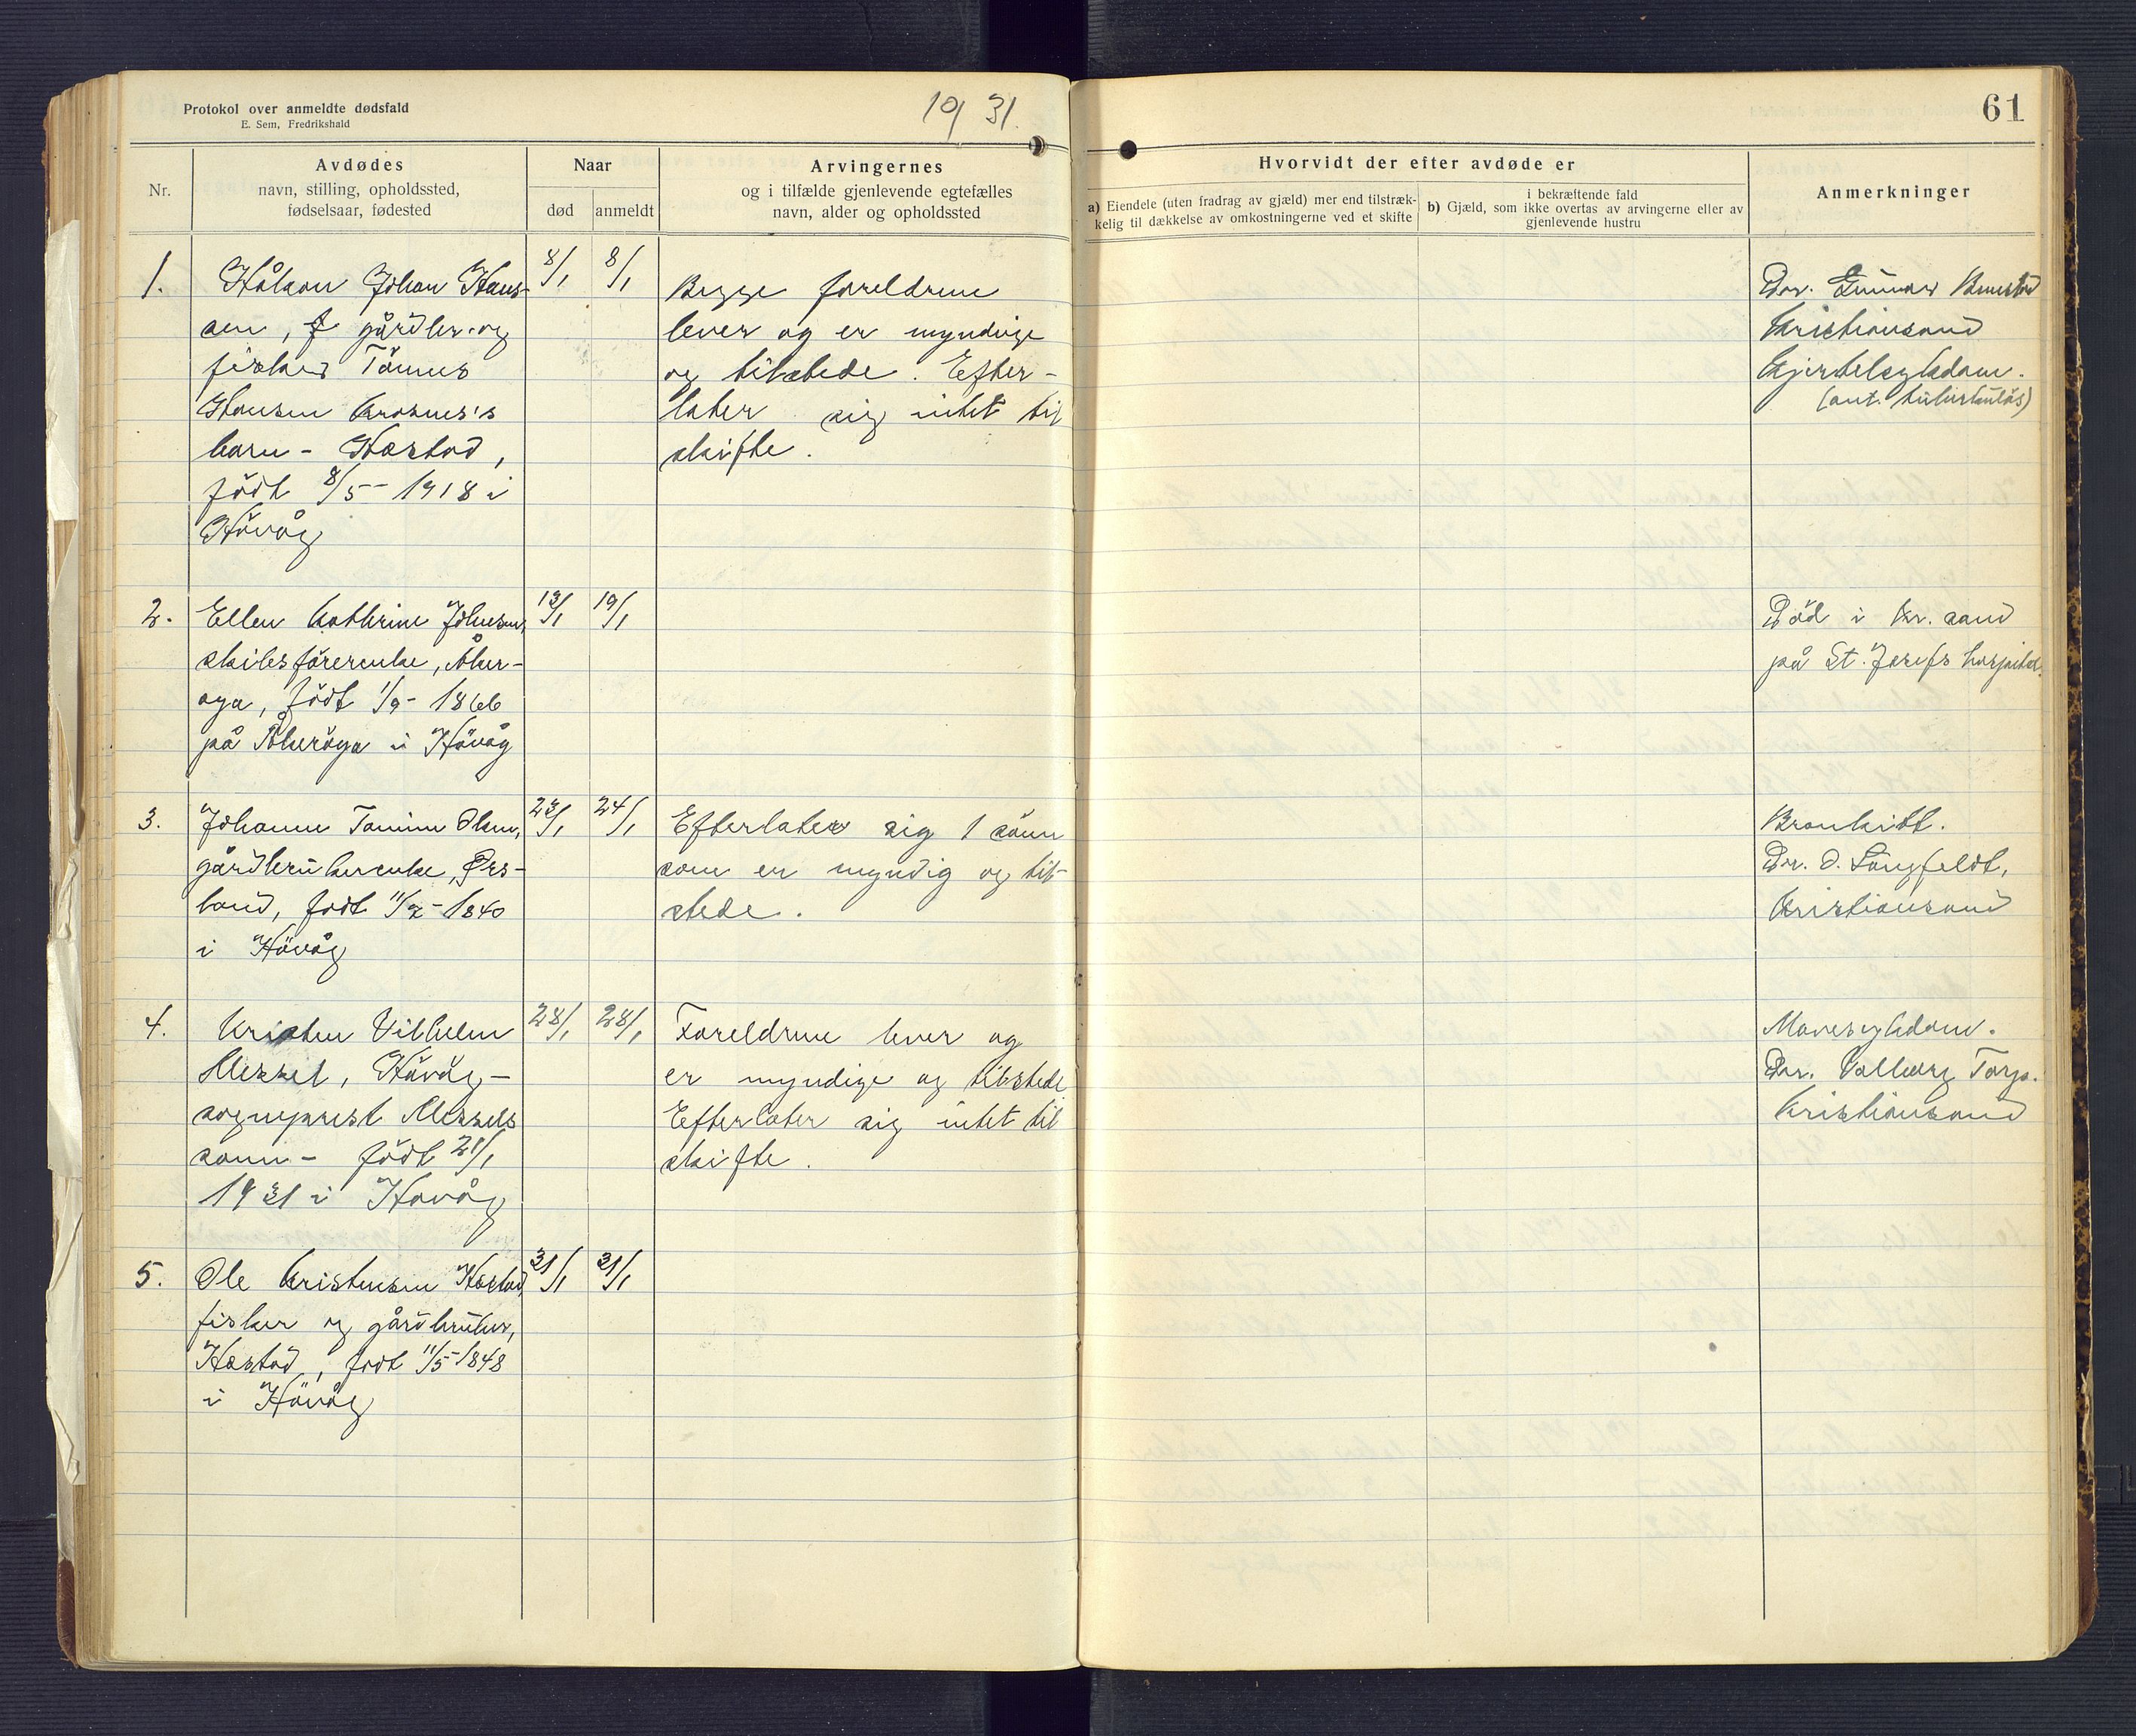 Protokol over anmeldte dødsfald
E. Sem, Fredrikshald
1931.
61
Nr.
Avdødes
navn, stilling, opholdssted,
fødselsaar, fødested
Naar
død
anmeldt
Arvingernes
og i tilfælde gjenlevende egtefælles
navn, alder og opholdssted
Hvorvidt der efter avdøde er
a) Eiendele (uten fradrag av gjæld) mer end tilstræk-
kelig til dækkelse av omkostningerne ved et skifte
i bekræftende fald
b) Gjæld, som ikke overtas av arvingerne eller av
gjenlevende hustru
Anmerkninger
1.
Håkon Johan Hans-
sen, gårdbr. og
fisker Tönnes
Hansen
barn - Hæstad,
födt 8/5 - 1918 i
Hövåg
8/1
8/1
Begge foreldrene
lever og er myndige
og tilstede. Efter-
later sig intet til
skifte.
Dr. Gunnar
Kristiansand
Hjertesykdom.
(ant. tuberkulös)
2.
Ellen Kathrine Johnsen,
skibsförerenke, Åker-
öya, födt 1/9 - 1866
på Åkeröya i Hövåg
13/1
19/1
Död i Kr.sand
på St. Josefs hospital.
3.
Johanne Tomine Olsen,
gårdbrukerenke, Ørs-
land, födt 11/2 - 1840
i Hövåg
23/1
24/1
Efterlater sig 1 sönn
som er myndig og til-
stede.
Bronkitt.
Dr. O. Langfeldt,
Kristiansand
4.
Kristen Vilhelm
Messel, Hövåg -
sogneprest Messels
sönn - födt 21/1
1931 i Hövåg
28/1
28/1
Foreldrene lever og
er myndige og tilstede
Efterlater sig intet til
skifte.
Mavesykdom.
Dr. Valborg Torp.
Kristiansand
5.
Ole Kristensen Hæstad,
fisker og gårdbruker,
Hæstad, födt 11/5 - 1848
i Hövåg
31/1
31/1